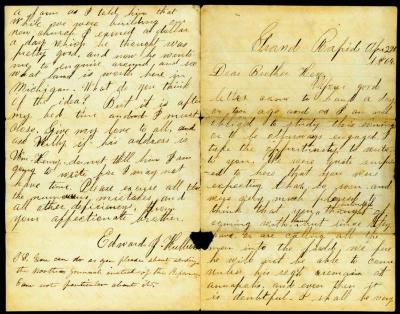 Grand Rapids Apr 22d
1864
Dear Brother Hen,
Your good
letter came to hand a day
or two ago and as I am not
obliged to study this evening
or to be otherwise engaged I
take the opportunity to write
to you. We were quite surprised
to hear that you were
expecting that so soon and
were very much pleased to
think that you thought of
coming with
are calling all the
men into the field, we fear
he will not be able to come
unless his regt remains at
annapolis, and even then it
is doubtful. I shall be very
a farm as I told him that
while we were building our
new church I earned a dollar
a day which he thought was
pretty good, and now he wants
me to enquire around, and see
what land is worth here in
Michigan. What do you think
of the idea? But it is after
my bed time and I must
close. Give my love to all, and
ask Willy if his address is
Wm. Henry, do not tell him I am
going to write for I may not
have time. Please excuse all
the mistakes, and
all other deficiencies. From
your affectionate brother.
Edward G.
P.S. You can do as you please about sending
the Journal instead of the
I am not particular about it.